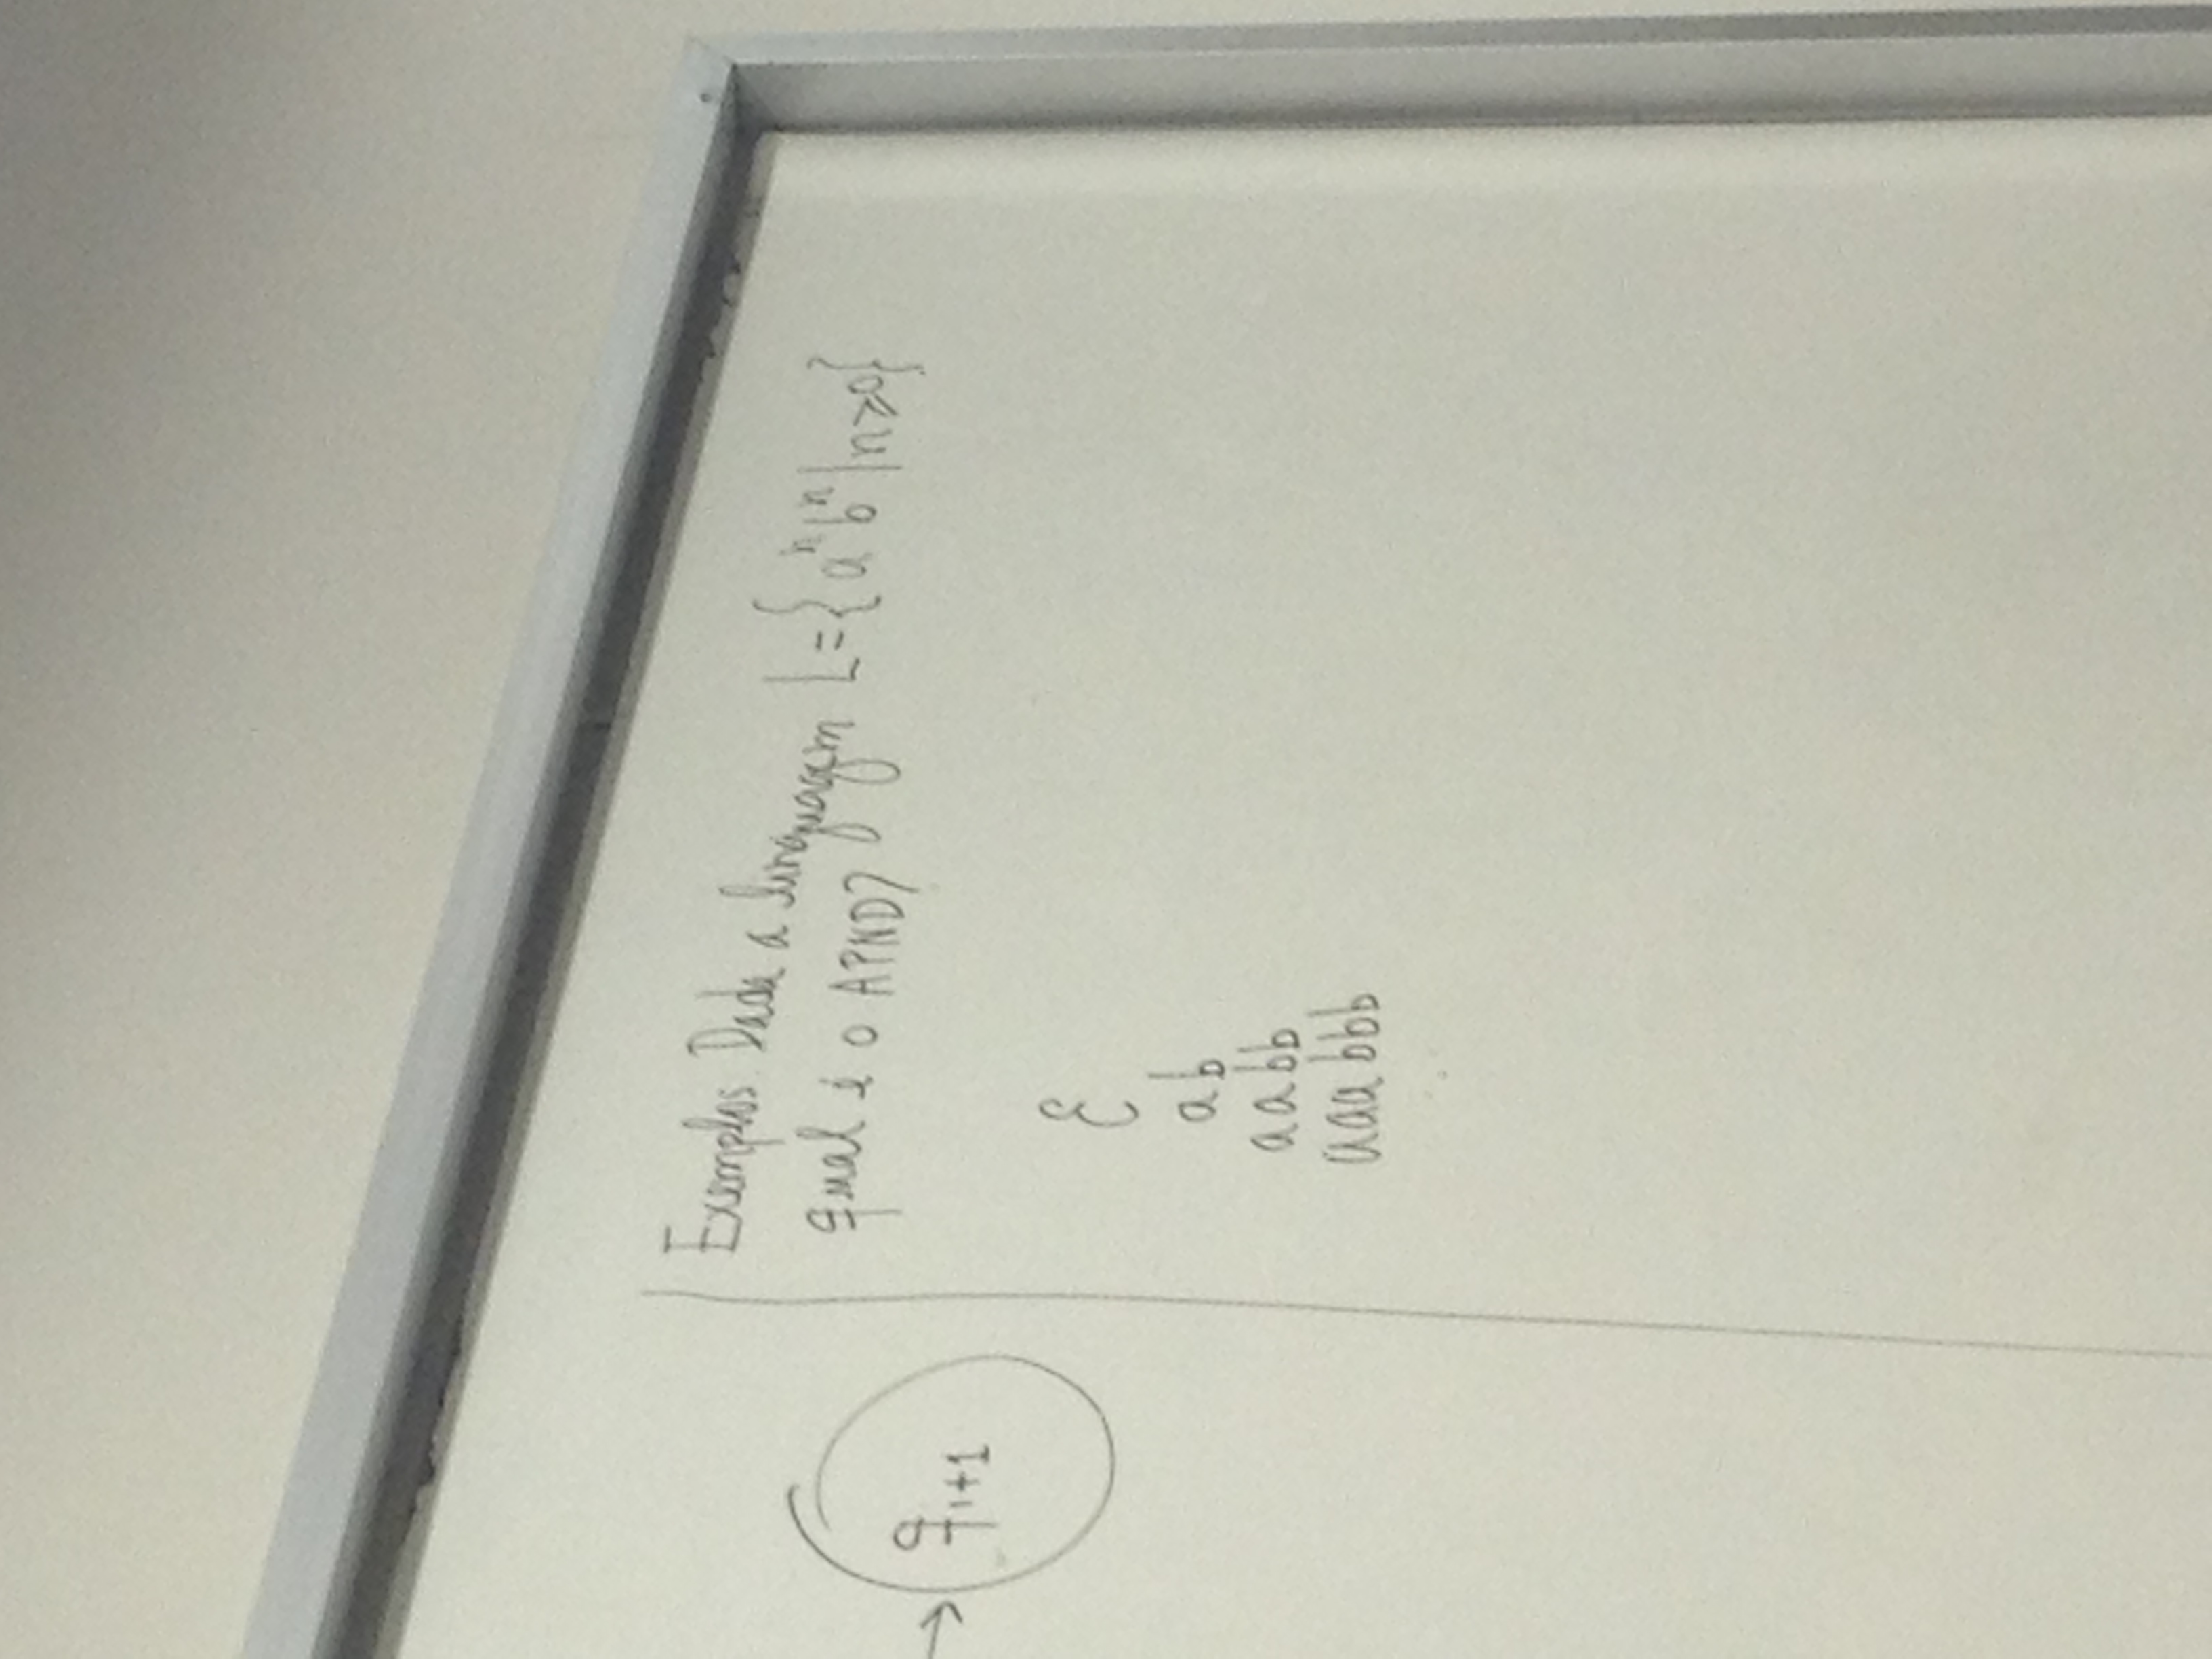 Exemplos. Dada a linguagem L={aⁿbⁿ|n⩾0}
qual é o APND?
qᵢ₊₁
ε
ab
aabb
aaabbb